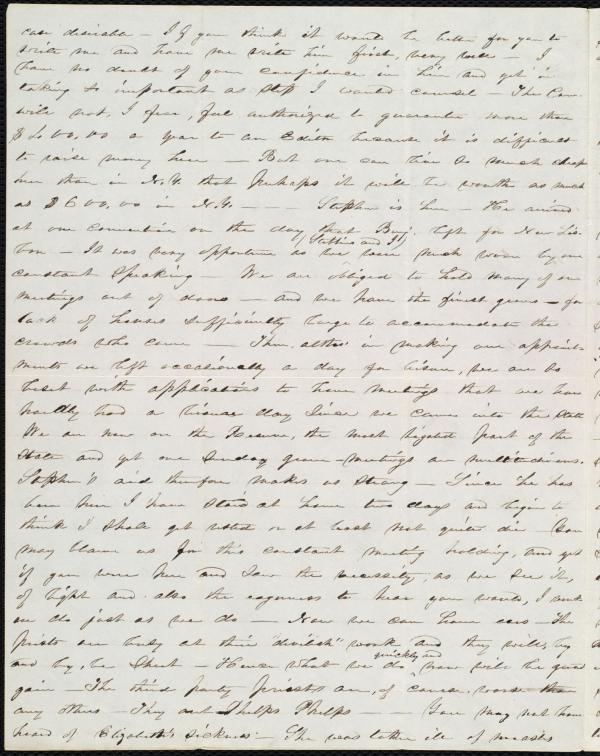 case desirable - If you think it would be better for you to
write me and have me write him first, very well - I
have no doubt of your confidence in him and yet in
taking so important a step I would counsel - The Com.
will not, I fear, feel authorized to guarantee more than
a year to an Editor because it is difficult
to raise money here - But one can live so much cheap
here than in N.Y. that perhaps it will be worth as much
as $600,00 in N.Y. - Stephen is here - He arrived
at our convention on the day that Benj. left for New Lis-
bon - It was very opportune as we were much worn by our
Stebbins and I
constant speaking - We are obliged to hold many of our
meetings out of doors - and we have the finest groves - for
lack of houses sufficiently large to accommodate the
crowds who come - Then, altho' in making our appoint-
ments we left occasionally a day for leisure, we are so
beset with applications to have meetings that we have
hardly had a leisure day since we came into the State
We are now on the Reserve, the most bigoted part of the
State and yet our Sunday grove-meetings are multitudinous.
Stephen's aid therefore makes us strong - Since he has
been here I have staid at home two days and begin to
think I shall get rested or at least not quite die - You
may blame us for this constant meeting holding, and yet
if you were here and saw the necessity, as we see it,
of light and also the eagerness to hear you would,
do just as we do - Now we can have ears - The
priests are busy at their "devilish" work and they will, by
and by, be shut - Hence what we do quickly and now will be your
gain - The third party priests are, of course worse than
any others - They out Phelps Phelps - You may not have
heard of Elizabeth's sickness - She was taken ill of measles